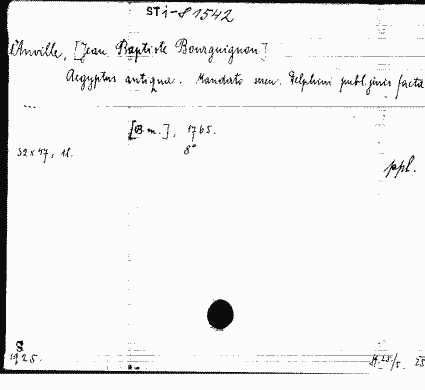 ST i-8 1542
d'Anville, [Jean Baptiste Bourguignon]
Aegyptus antiqua. Mandato seren. Delphini publ. juris facta
...
[B. m.], 1765.
8°
52 x 47, 1l.
ppl.
8
1925.
25